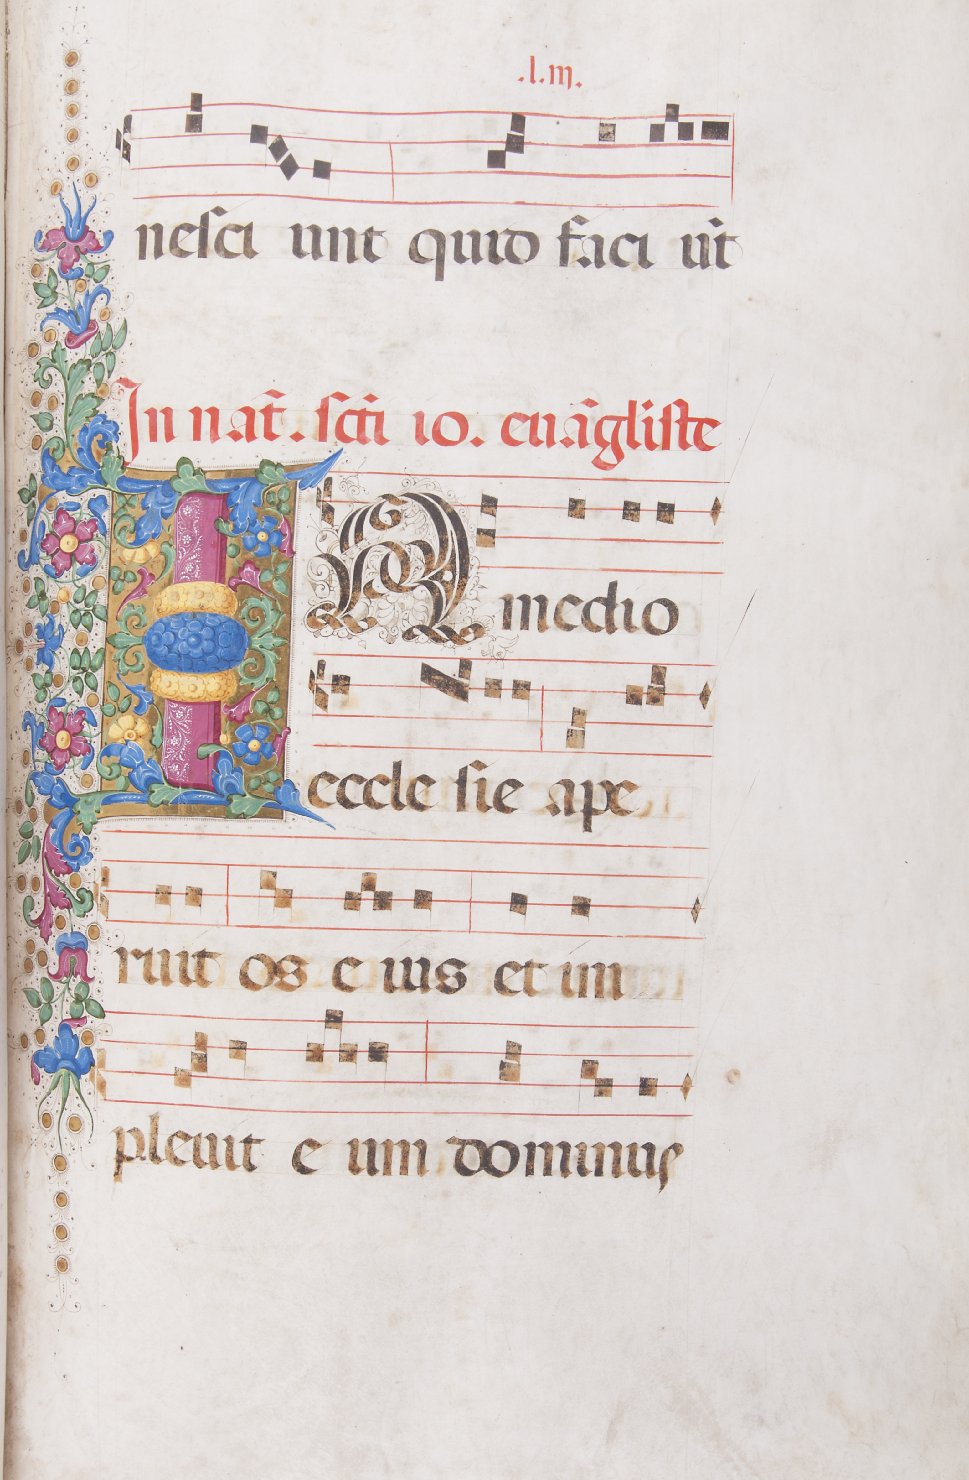 .l.m.
nesci unt quid faci ūt
In nat̄. scti̅ io. eua̅gliste
IN medio
eccle sie ape
ruit os e ius et im
pleuit e um dominus